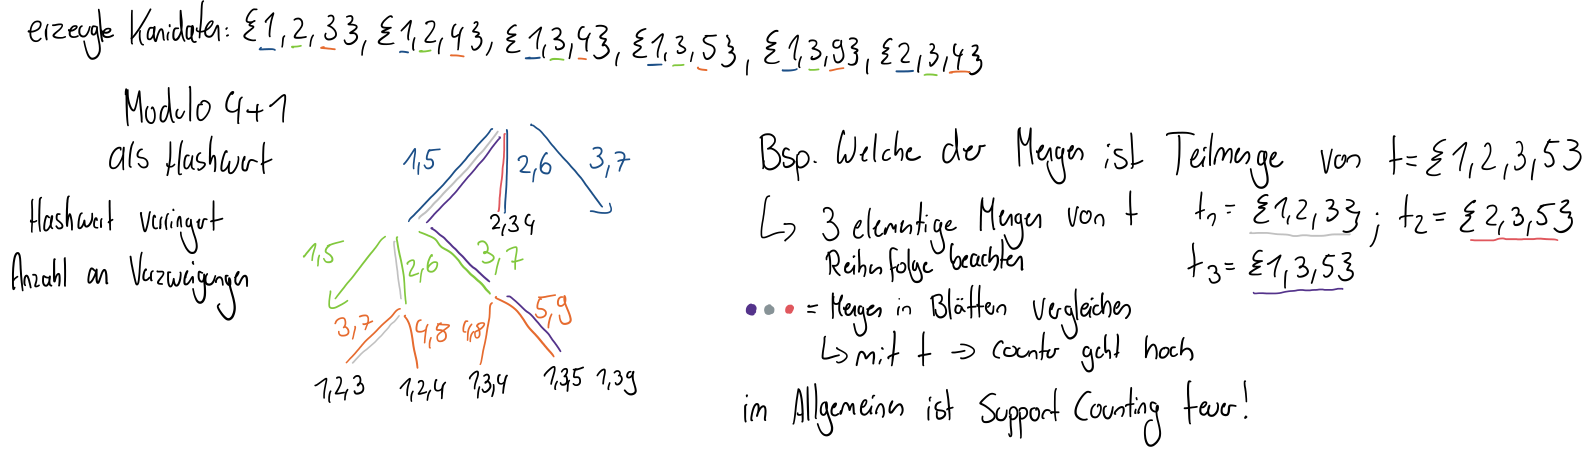 erzeugte Kanidaten: {1,2,3}, {1,2,4}, {1,3,4}, {1,3,5}, {1,3,9}, {2,3,4}
Modulo 4+1
als Hashwert
Hashwert verringert
Anzahl an Verzweigungen
1,5
2,6
3,7
2,3 4
1,5
2,6
3,7
3,7
4,8
4,8
5,9
1,2,3
1,2,4
1,3,4
1,3,5 1,3 9
Bsp. Welche der Mengen ist Teilmenge von t={1,2,3,5}
↳ 3 elementige Mengen von t
Reihenfolge beachten
t₁ = {1,2,3} ; t₂ = {2,3,5}
t₃ = {1,3,5}
• • • = Mengen in Blättern vergleichen
↳ mit t → counter geht hoch
im Allgemeinen ist Support Counting teuer!